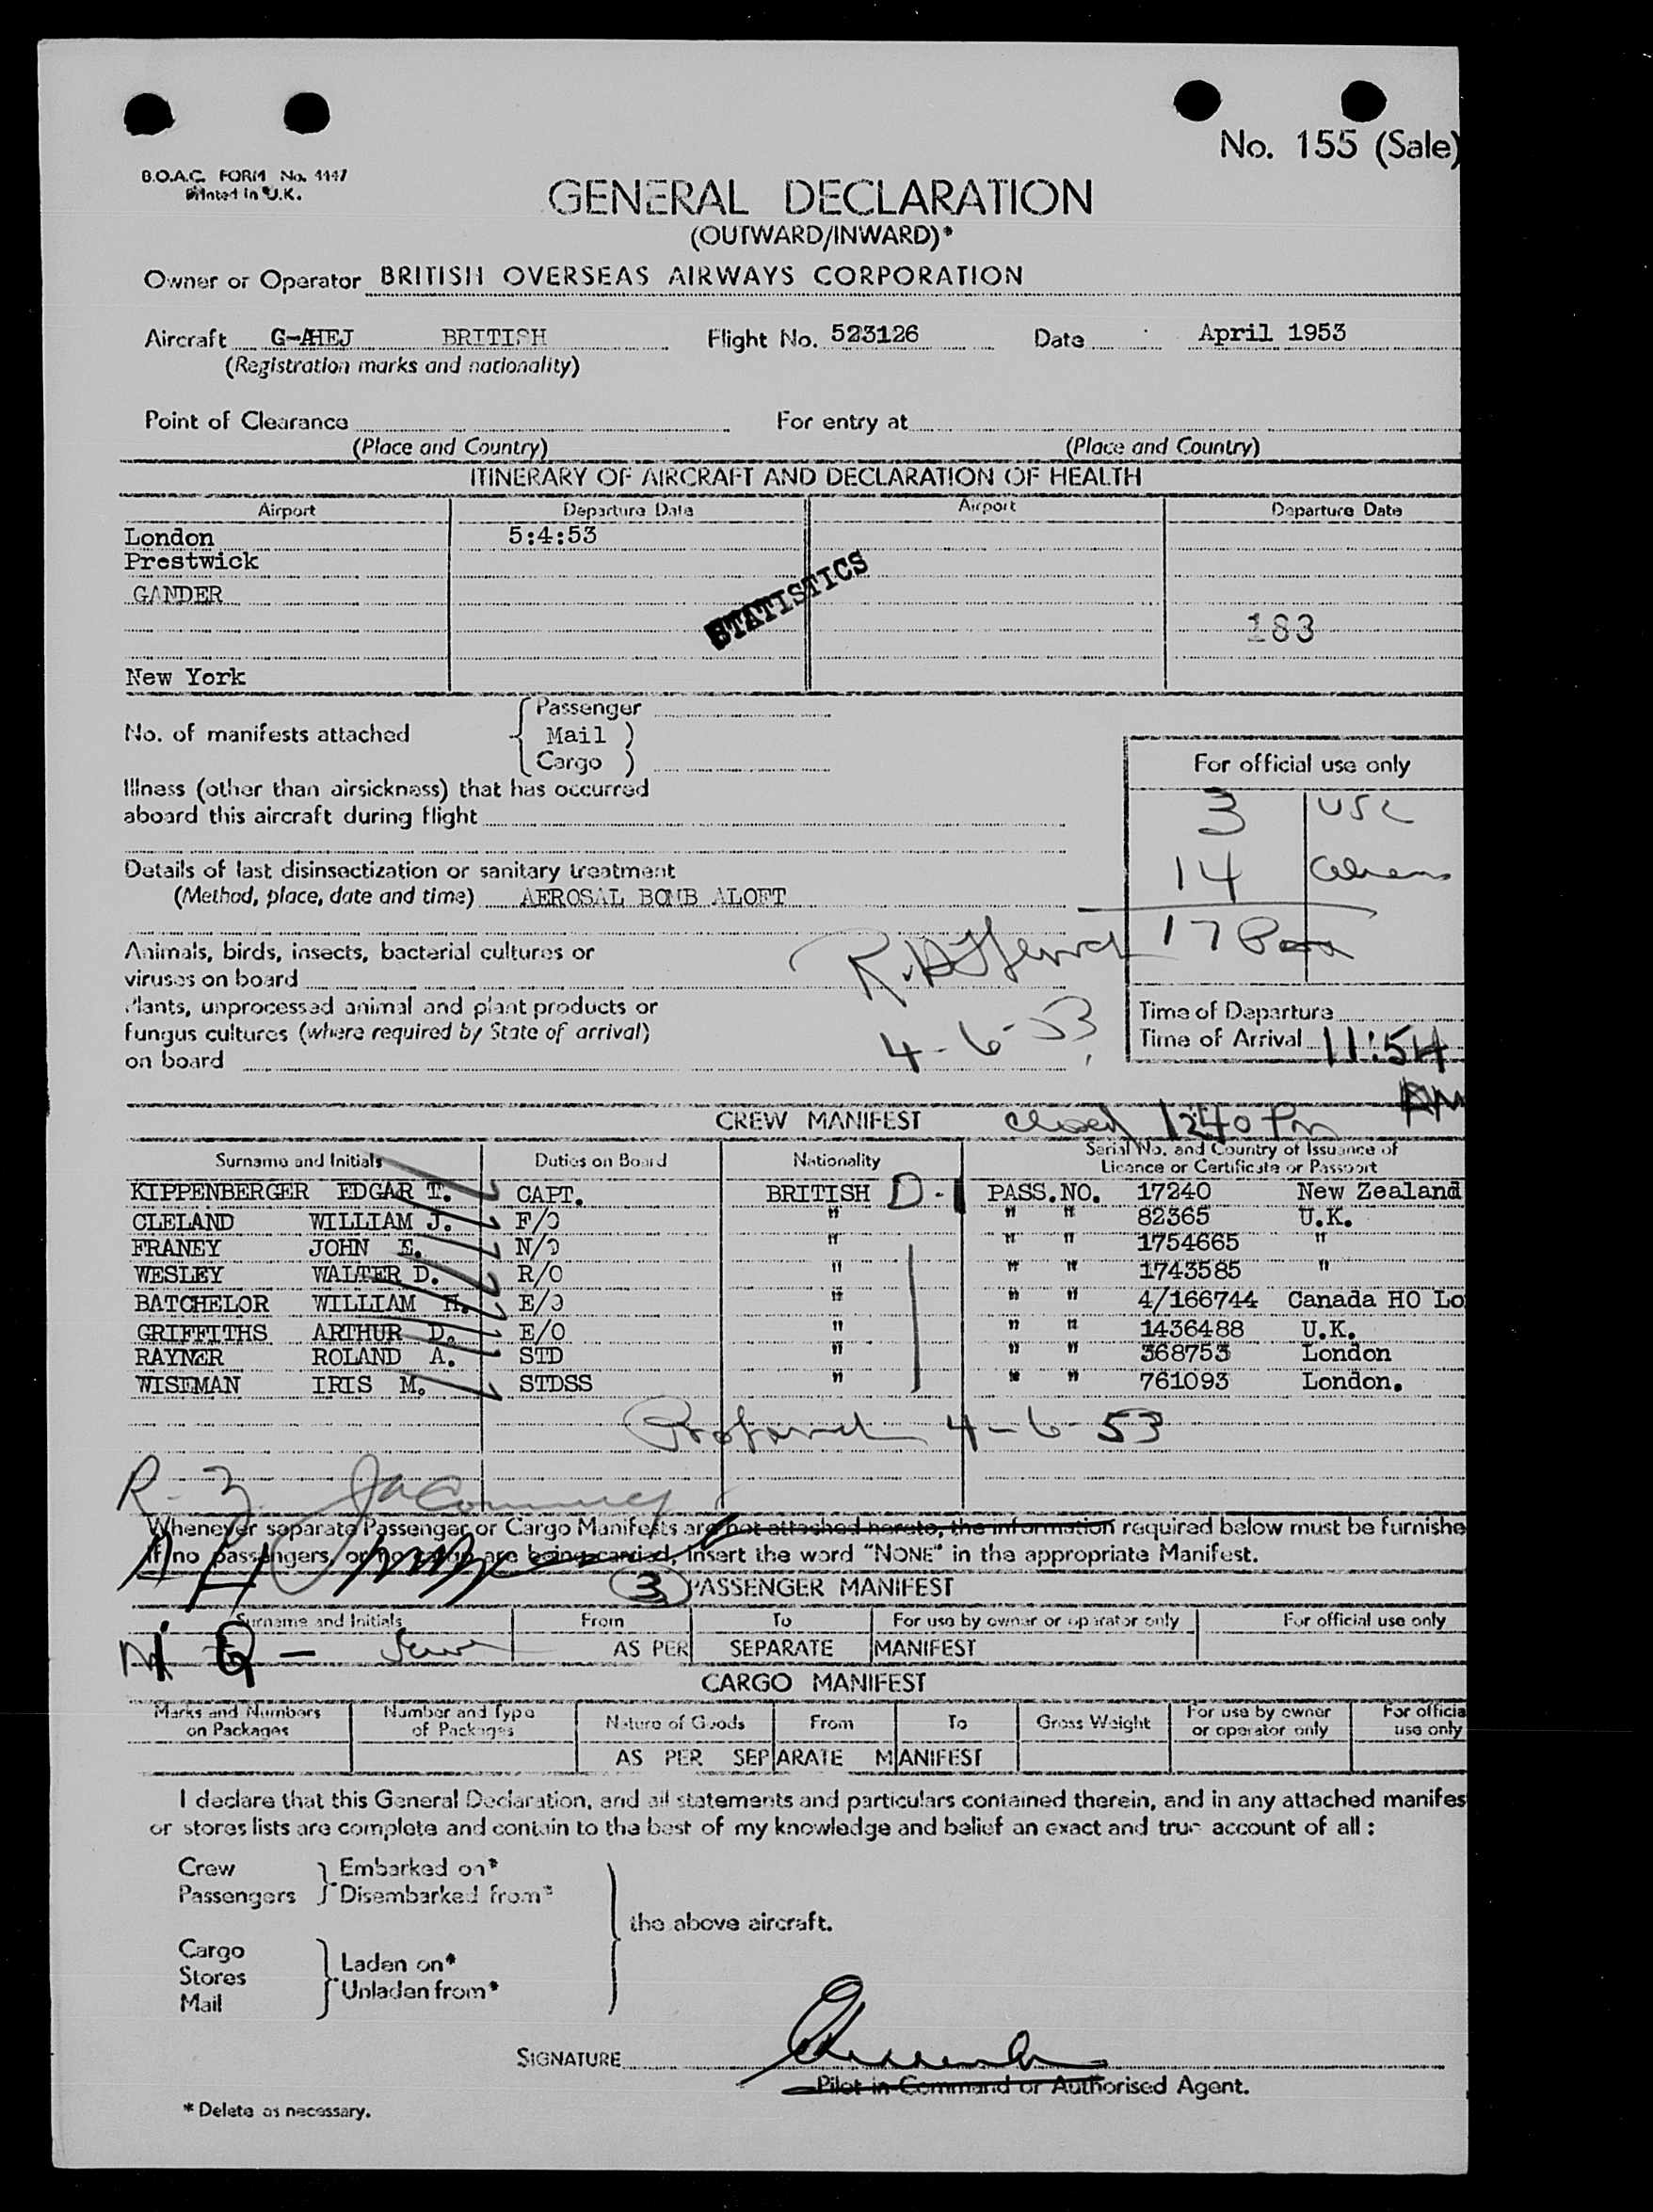 No. 155 (Sale)
B.O.A.C. FORM No. 4447
Printed in U.K.
GENERAL DECLARATION
(OUTWARD/INWARD)*
Owner or Operator BRITISH OVERSEAS AIRWAYS CORPORATION
Aircraft G-AHEJ BRITISH Flight No. 523126 Date April 1953
(Registration marks and nationality)
Point of Clearance For entry at
(Place and Country) (Place and Country)
ITINERARY OF AIRCRAFT AND DECLARATION OF HEALTH
Airport Departure Date Airport Departure Date
London 5:4:53
Prestwick
STATISTICS
GANDER
183
New York
No. of manifests attached { Passenger
Mail )
Cargo )
For official use only
3 USC
14 Aliens
17 Pax
Illness (other than airsickness) that has occurred
aboard this aircraft during flight
Details of last disinsectization or sanitary treatment
(Method, place, date and time) AEROSAL BOMB ALOFT
Animals, birds, insects, bacterial cultures or
viruses on board
Plants, unprocessed animal and plant products or
fungus cultures (where required by State of arrival)
on board
4-6-53
Time of Departure
Time of Arrival 11:54
AM
CREW MANIFEST closed 1240 Pm
Surname and Initials Duties on Board Nationality Serial No. and Country of Issuance of
Licence or Certificate or Passport
KIPPENBERGER EDGAR T. CAPT. BRITISH D-1 PASS.NO. 17240 New Zealand
CLELAND WILLIAM J. F/O " " " 82365 U.K.
FRANEY JOHN E. N/O " " " 1754665 "
WESLEY WALTER D. R/O " " " 1743585 "
BATCHELOR WILLIAM H. E/O " " " 4/166744 Canada HO Lo
GRIFFITHS ARTHUR D. E/O " " " 1436488 U.K.
RAYNER ROLAND A. STD " " " 368753 London
WISEMAN IRIS M. STDSS " " " 761093 London.
4-6-53
Whenever separate Passenger or Cargo Manifests are not attached hereto, the information required below must be furnishe
If no passengers, or no cargo are being carried, insert the word "NONE" in the appropriate Manifest.
3 PASSENGER MANIFEST
Surname and Initials From To For use by owner or operator only For official use only
AS PER SEPARATE MANIFEST
CARGO MANIFEST
Marks and Numbers on Packages Number and Type of Packages Nature of Goods From To Gross Weight For use by owner or operator only For officia use only
AS PER SEPARATE MANIFEST
I declare that this General Declaration, and all statements and particulars contained therein, and in any attached manifes
or stores lists are complete and contain to the best of my knowledge and belief an exact and true account of all :
Crew } Embarked on*
Passengers } Disembarked from*
the above aircraft.
Cargo
Stores } Laden on*
Mail } Unladen from*
SIGNATURE
Pilot in Command or Authorised Agent.
* Delete as necessary.